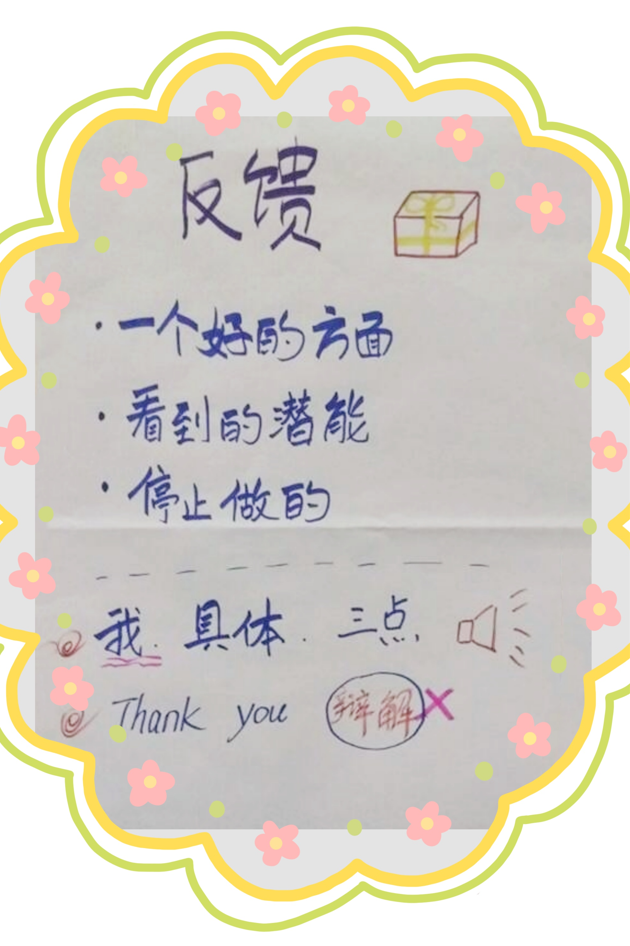 反馈
·一个好的方面
·看到的潜能
·停止做的
我. 具体. 三点.
Thank you 辩解